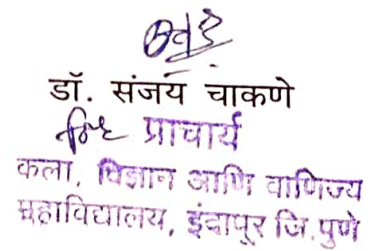 डॉ. संजय चाकणे
प्राचार्य
कला, विज्ञान आणि वाणिज्य
महाविद्यालय, इंदापुर जि. पुणे